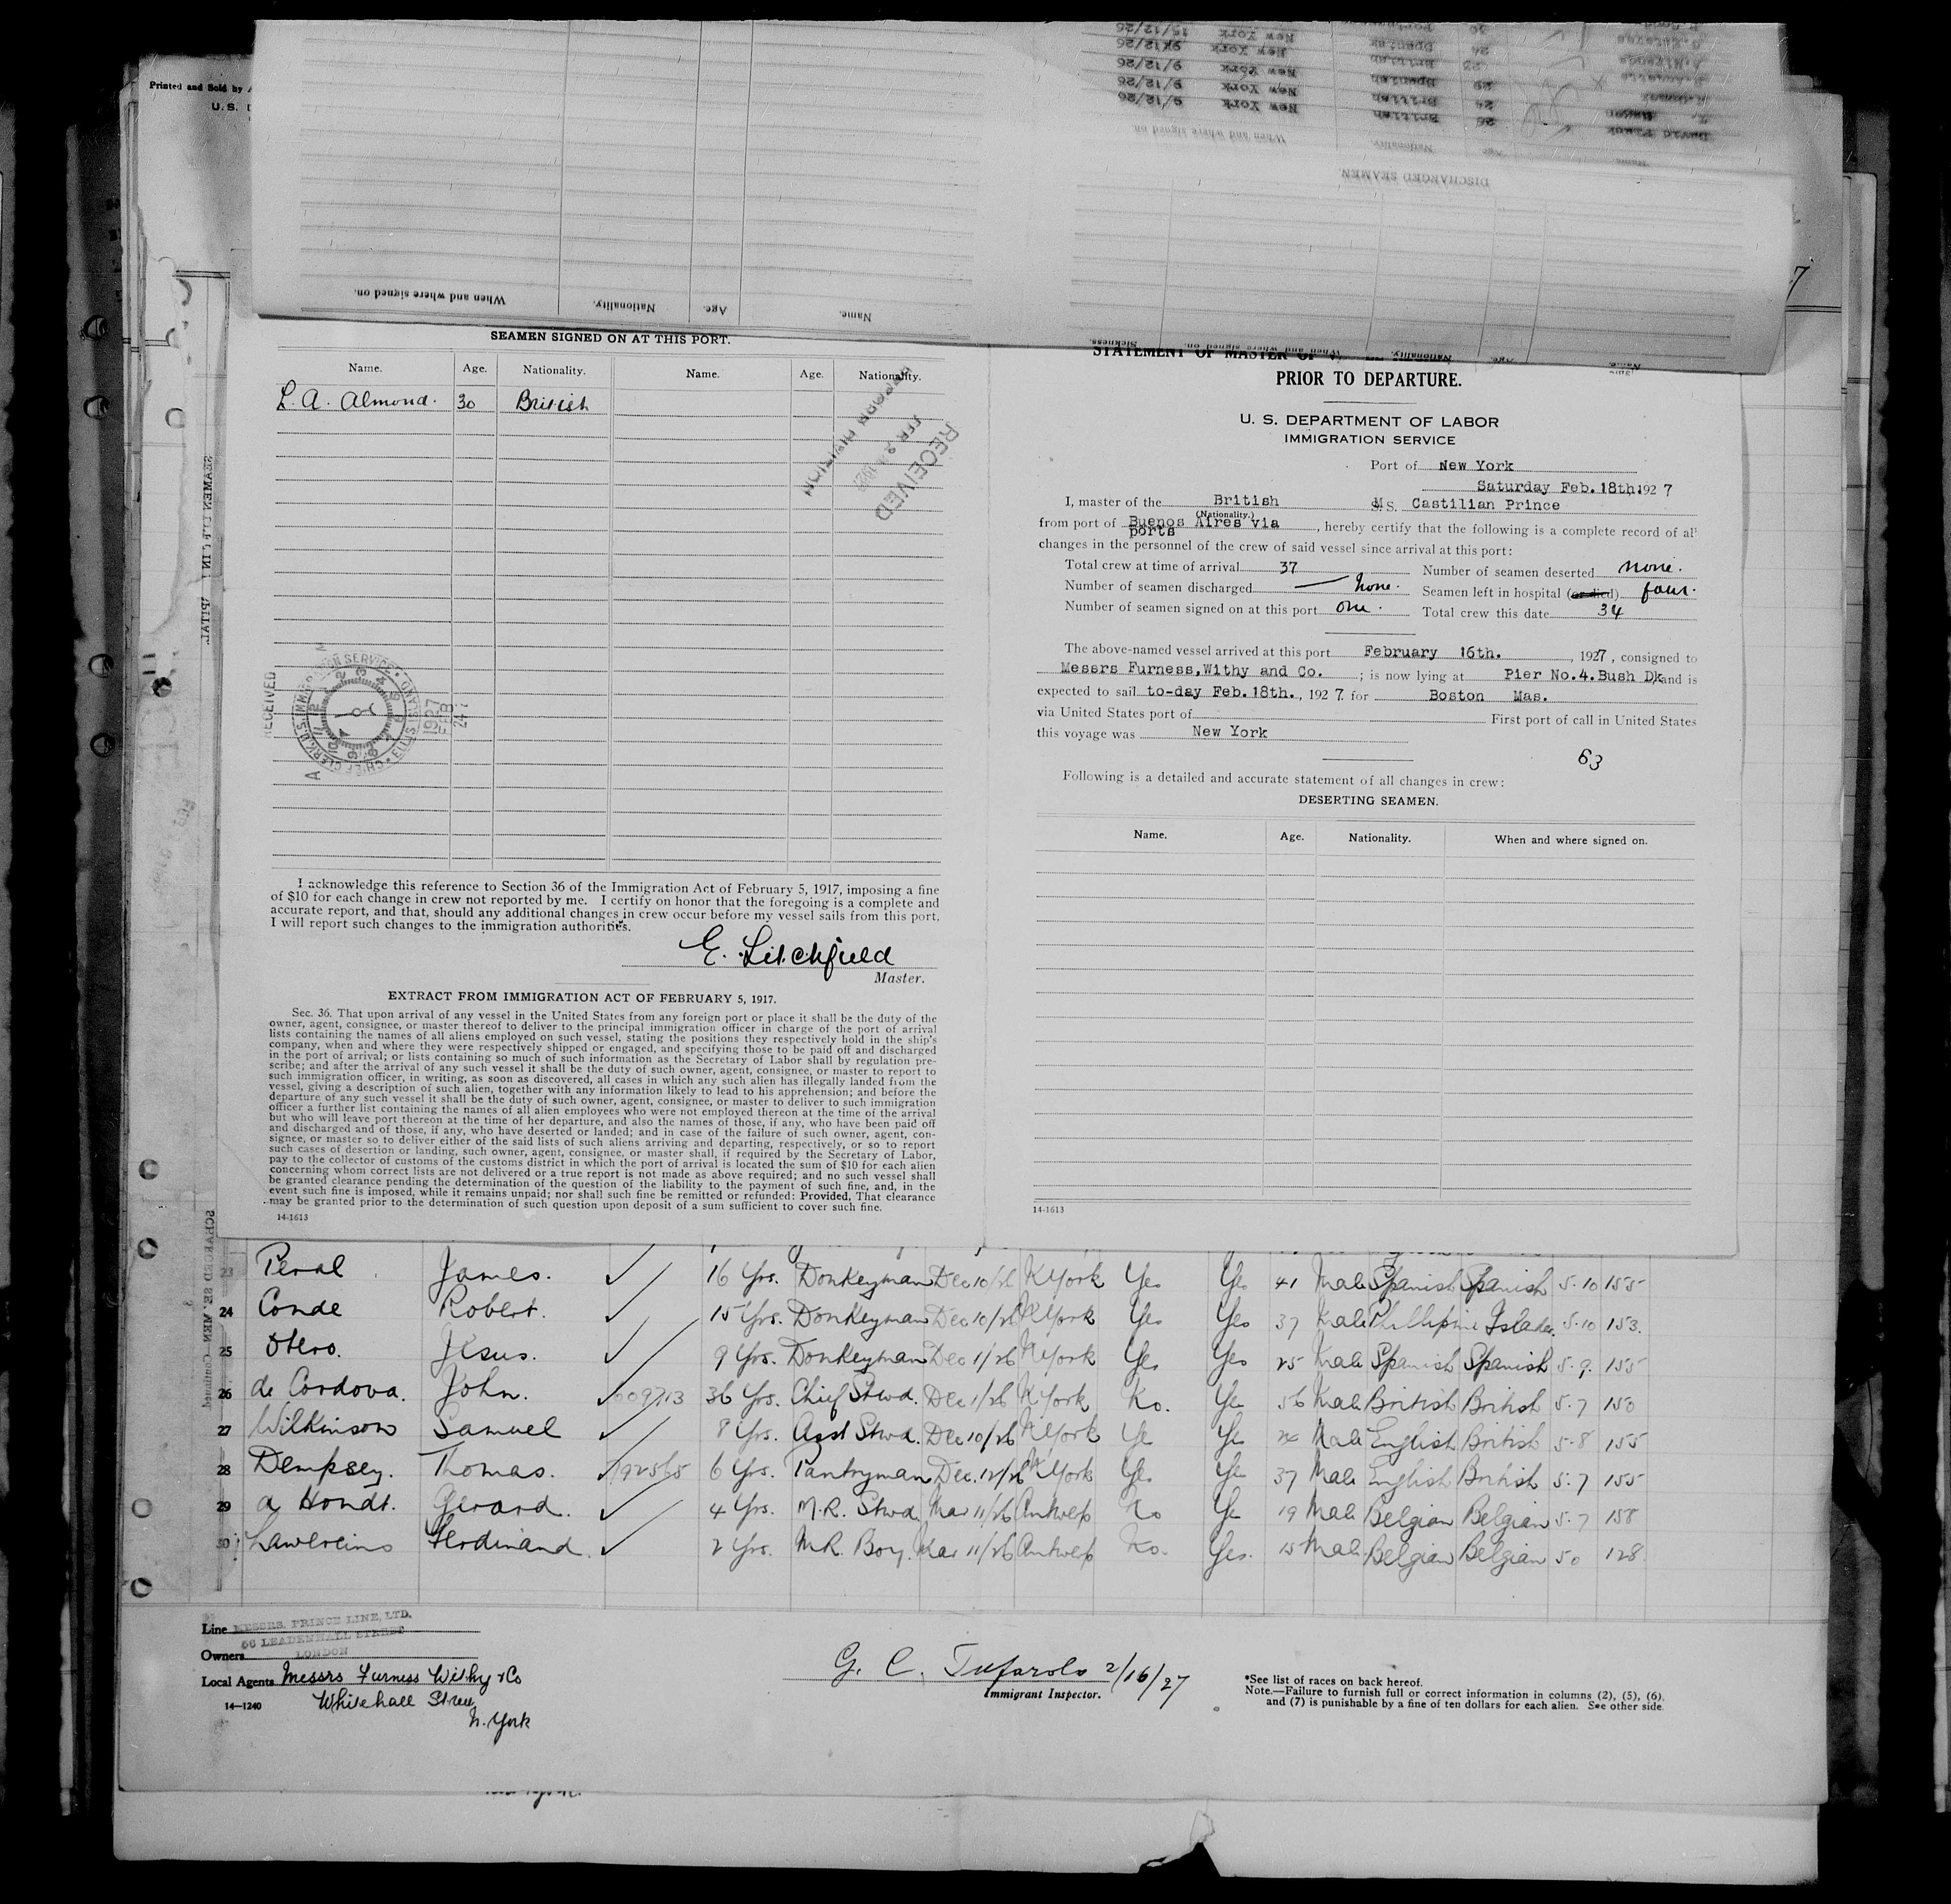 Printed and Sold by
U. S.
New York 15/12/26
Spanish New York 9/12/26
British New York 9/12/26
Spanish New York 9/12/26
British New York 9/12/26
When and where signed on
Nationality.
Age.
Name.
DISCHARGED SEAMEN.
Name. Age. Nationality. When and where signed on.
Name. Age. Nationality. When and where signed on. Sickness.
SEAMEN SIGNED ON AT THIS PORT.
Name. Age. Nationality. Name. Age. Nationality.
L. A. Almond. 30 British
RECEIVED
RECEIVED
CHIEF CLERK U.S. IMMIGRATION SERVICE ELLIS ISLAND
1927
FEB
24
I acknowledge this reference to Section 36 of the Immigration Act of February 5, 1917, imposing a fine
of $10 for each change in crew not reported by me. I certify on honor that the foregoing is a complete and
accurate report, and that, should any additional changes in crew occur before my vessel sails from this port,
I will report such changes to the immigration authorities.
E. Litchfield
Master.
EXTRACT FROM IMMIGRATION ACT OF FEBRUARY 5, 1917.
Sec. 36. That upon arrival of any vessel in the United States from any foreign port or place it shall be the duty of the
owner, agent, consignee, or master thereof to deliver to the principal immigration officer in charge of the port of arrival
lists containing the names of all aliens employed on such vessel, stating the positions they respectively hold in the ship's
company, when and where they were respectively shipped or engaged, and specifying those to be paid off and discharged
in the port of arrival; or lists containing so much of such information as the Secretary of Labor shall by regulation pre-
scribe; and after the arrival of any such vessel it shall be the duty of such owner, agent, consignee, or master to report to
such immigration officer, in writing, as soon as discovered, all cases in which any such alien has illegally landed from the
vessel, giving a description of such alien, together with any information likely to lead to his apprehension; and before the
departure of any such vessel it shall be the duty of such owner, agent, consignee, or master to deliver to such immigration
officer a further list containing the names of all alien employees who were not employed thereon at the time of the arrival
but who will leave port thereon at the time of her departure, and also the names of those, if any, who have been paid off
and discharged and of those, if any, who have deserted or landed; and in case of the failure of such owner, agent, con-
signee, or master so to deliver either of the said lists of such aliens arriving and departing, respectively, or so to report
such cases of desertion or landing, such owner, agent, consignee, or master shall, if required by the Secretary of Labor,
pay to the collector of customs of the customs district in which the port of arrival is located the sum of $10 for each alien
concerning whom correct lists are not delivered or a true report is not made as above required; and no such vessel shall
be granted clearance pending the determination of the question of the liability to the payment of such fine, and, in the
event such fine is imposed, while it remains unpaid; nor shall such fine be remitted or refunded: Provided, That clearance
may be granted prior to the determination of such question upon deposit of a sum sufficient to cover such fine.
14-1613
STATEMENT OF MASTER OF
PRIOR TO DEPARTURE.
U. S. DEPARTMENT OF LABOR
IMMIGRATION SERVICE
Port of New York
Saturday Feb. 18th, 1927
I, master of the British M.S. Castilian Prince
(Nationality.)
from port of Buenos Aires via ports, hereby certify that the following is a complete record of all
changes in the personnel of the crew of said vessel since arrival at this port:
Total crew at time of arrival 37 Number of seamen deserted none.
Number of seamen discharged none. Seamen left in hospital (or died) four.
Number of seamen signed on at this port one. Total crew this date 34
The above-named vessel arrived at this port February 16th. , 1927, consigned to
Messrs Furness,Withy and Co. ; is now lying at Pier No.4.Bush Dk and is
expected to sail to-day Feb.18th., 1927. for Boston Mas.
via United States port of First port of call in United States
this voyage was New York
63
Following is a detailed and accurate statement of all changes in crew:
DESERTING SEAMEN.
Name. Age. Nationality. When and where signed on.
14-1613
23 Peral James. 16 Yrs. Donkeyman Dec 10/26 N York Yes Yes 41 Male Spanish Spanish 5-10 155
24 Conde Robert. 15 Yrs. Donkeyman Dec 10/26 N York Yes Yes 37 Male Phillipine Islands. 5-10 153.
25 Otero. Jesus. 9 Yrs. Donkeyman Dec 1/26 N York Yes Yes 25 Male Spanish Spanish 5-9. 155
26 de Cordova. John. 609713 36 Yrs. Chief Stwd. Dec 1/26 N York No. Ye 56 Male British British 5-7 150
27 Wilkinson Samuel 8 Yrs. Asst Stwd. Dec 10/26 N York Ye Yes Male English British 5-8 155
28 Dempsey. Thomas. 192565 6 Yrs. Pantryman Dec. 12/26 N York Yes Ye 37 Male English British 5-7 155
29 d Hondt. Gerard. 4 Yrs. M.R. Stwd. Mar 11/26 Antwep No Ye 19 Male Belgian Belgian 5-7 158
30 Lawereins Ferdinand. 2 Yrs. M.R. Boy. Mar 11/26 Antwep No. Yes. 15 Male Belgian Belgian 50 128.
Line MESSRS. PRINCE LINE, LTD.
56 LEADENHALL STREET
Owners LONDON
Local Agents Messrs Furness Withy & Co
14—1240 Whitehall Street
N. York
G. C. Tufarolo 2/16/27
Immigrant Inspector.
*See list of races on back hereof.
Note.—Failure to furnish full or correct information in columns (2), (5), (6),
and (7) is punishable by a fine of ten dollars for each alien. See other side.